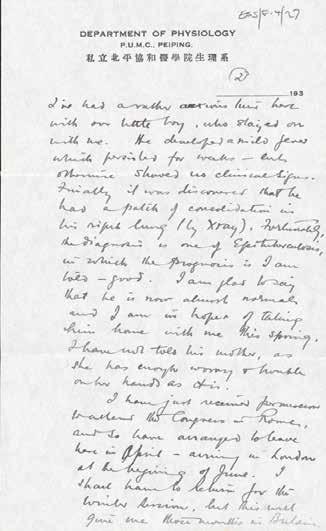 ESS/F.4/27
DEPARTMENT OF PHYSIOLOGY
P.U.M.C., PEIPING.
私立北平協和醫學院生理系
(2)
193
I've had a rather anxious time here
with our little boy, who stayed on
with me. He developed a mild fever
which persisted for weeks – but
otherwise showed no clinical signs.
Finally it was discovered that he
had a patch of consolidation in
his right lung (by Xray). Fortunately,
the diagnosis is one of Epituberculosis,
in which the prognosis is I am
told – good. I am glad to say
that he is now almost normal
and I am in hopes of taking
him home with me this spring.
I have not told his mother, as
she has enough worry & trouble
on her hands as it is.
I have just received permission
to attend the Congress in Rome,
and so have arranged to leave
here in April – arriving in London
at the begining of June. I
shall have to return for the
Winter session, but this will
give me three months in